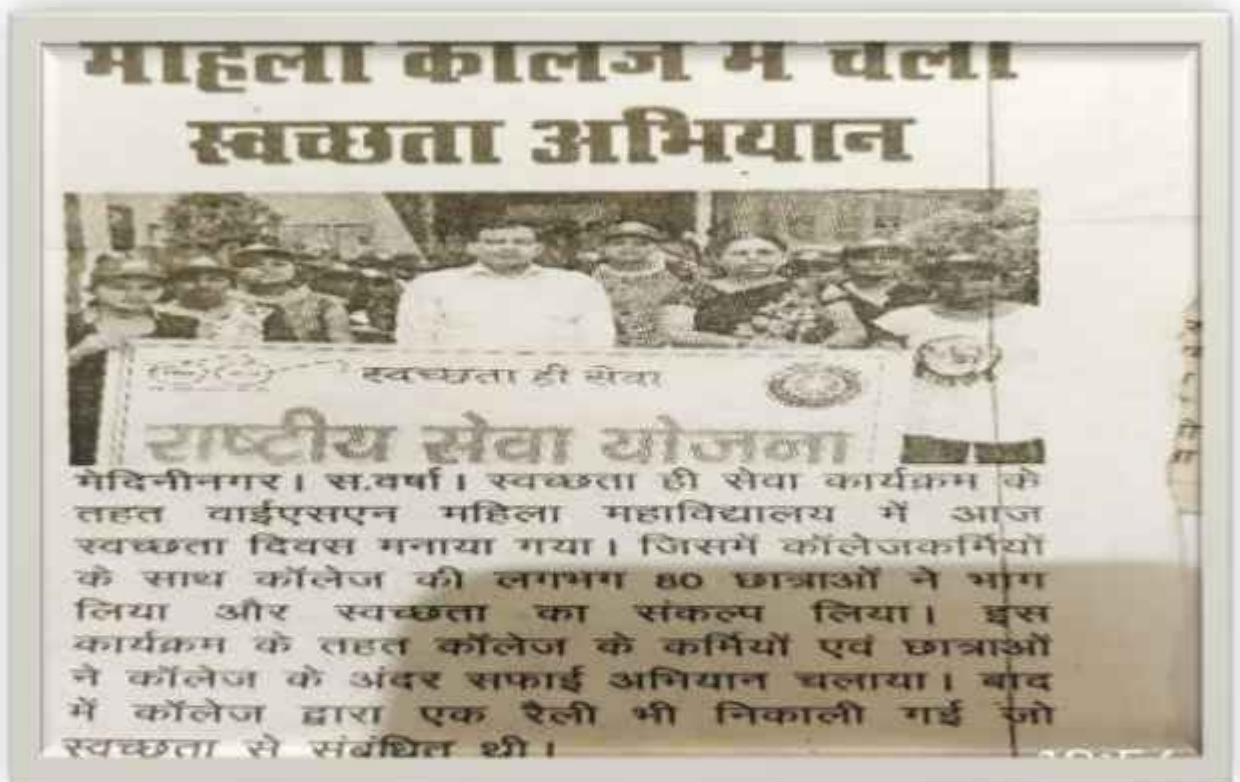 महिला कॉलेज में चला
स्वच्छता अभियान
स्वच्छता ही सेवा
राष्ट्रीय सेवा योजना
मेदिनीनगर। स.वर्षा। स्वच्छता ही सेवा कार्यक्रम के
तहत वाईएसएन महिला महाविद्यालय में आज
स्वच्छता दिवस मनाया गया। जिसमें कॉलेजकर्मियों
के साथ कॉलेज की लगभग 80 छात्राओं ने भाग
लिया और स्वच्छता का संकल्प लिया। इस
कार्यक्रम के तहत कॉलेज के कर्मियों एवं छात्राओं
ने कॉलेज के अंदर सफाई अभियान चलाया। बाद
में कॉलेज द्वारा एक रैली भी निकाली गई जो
स्वच्छता से संबंधित थी।